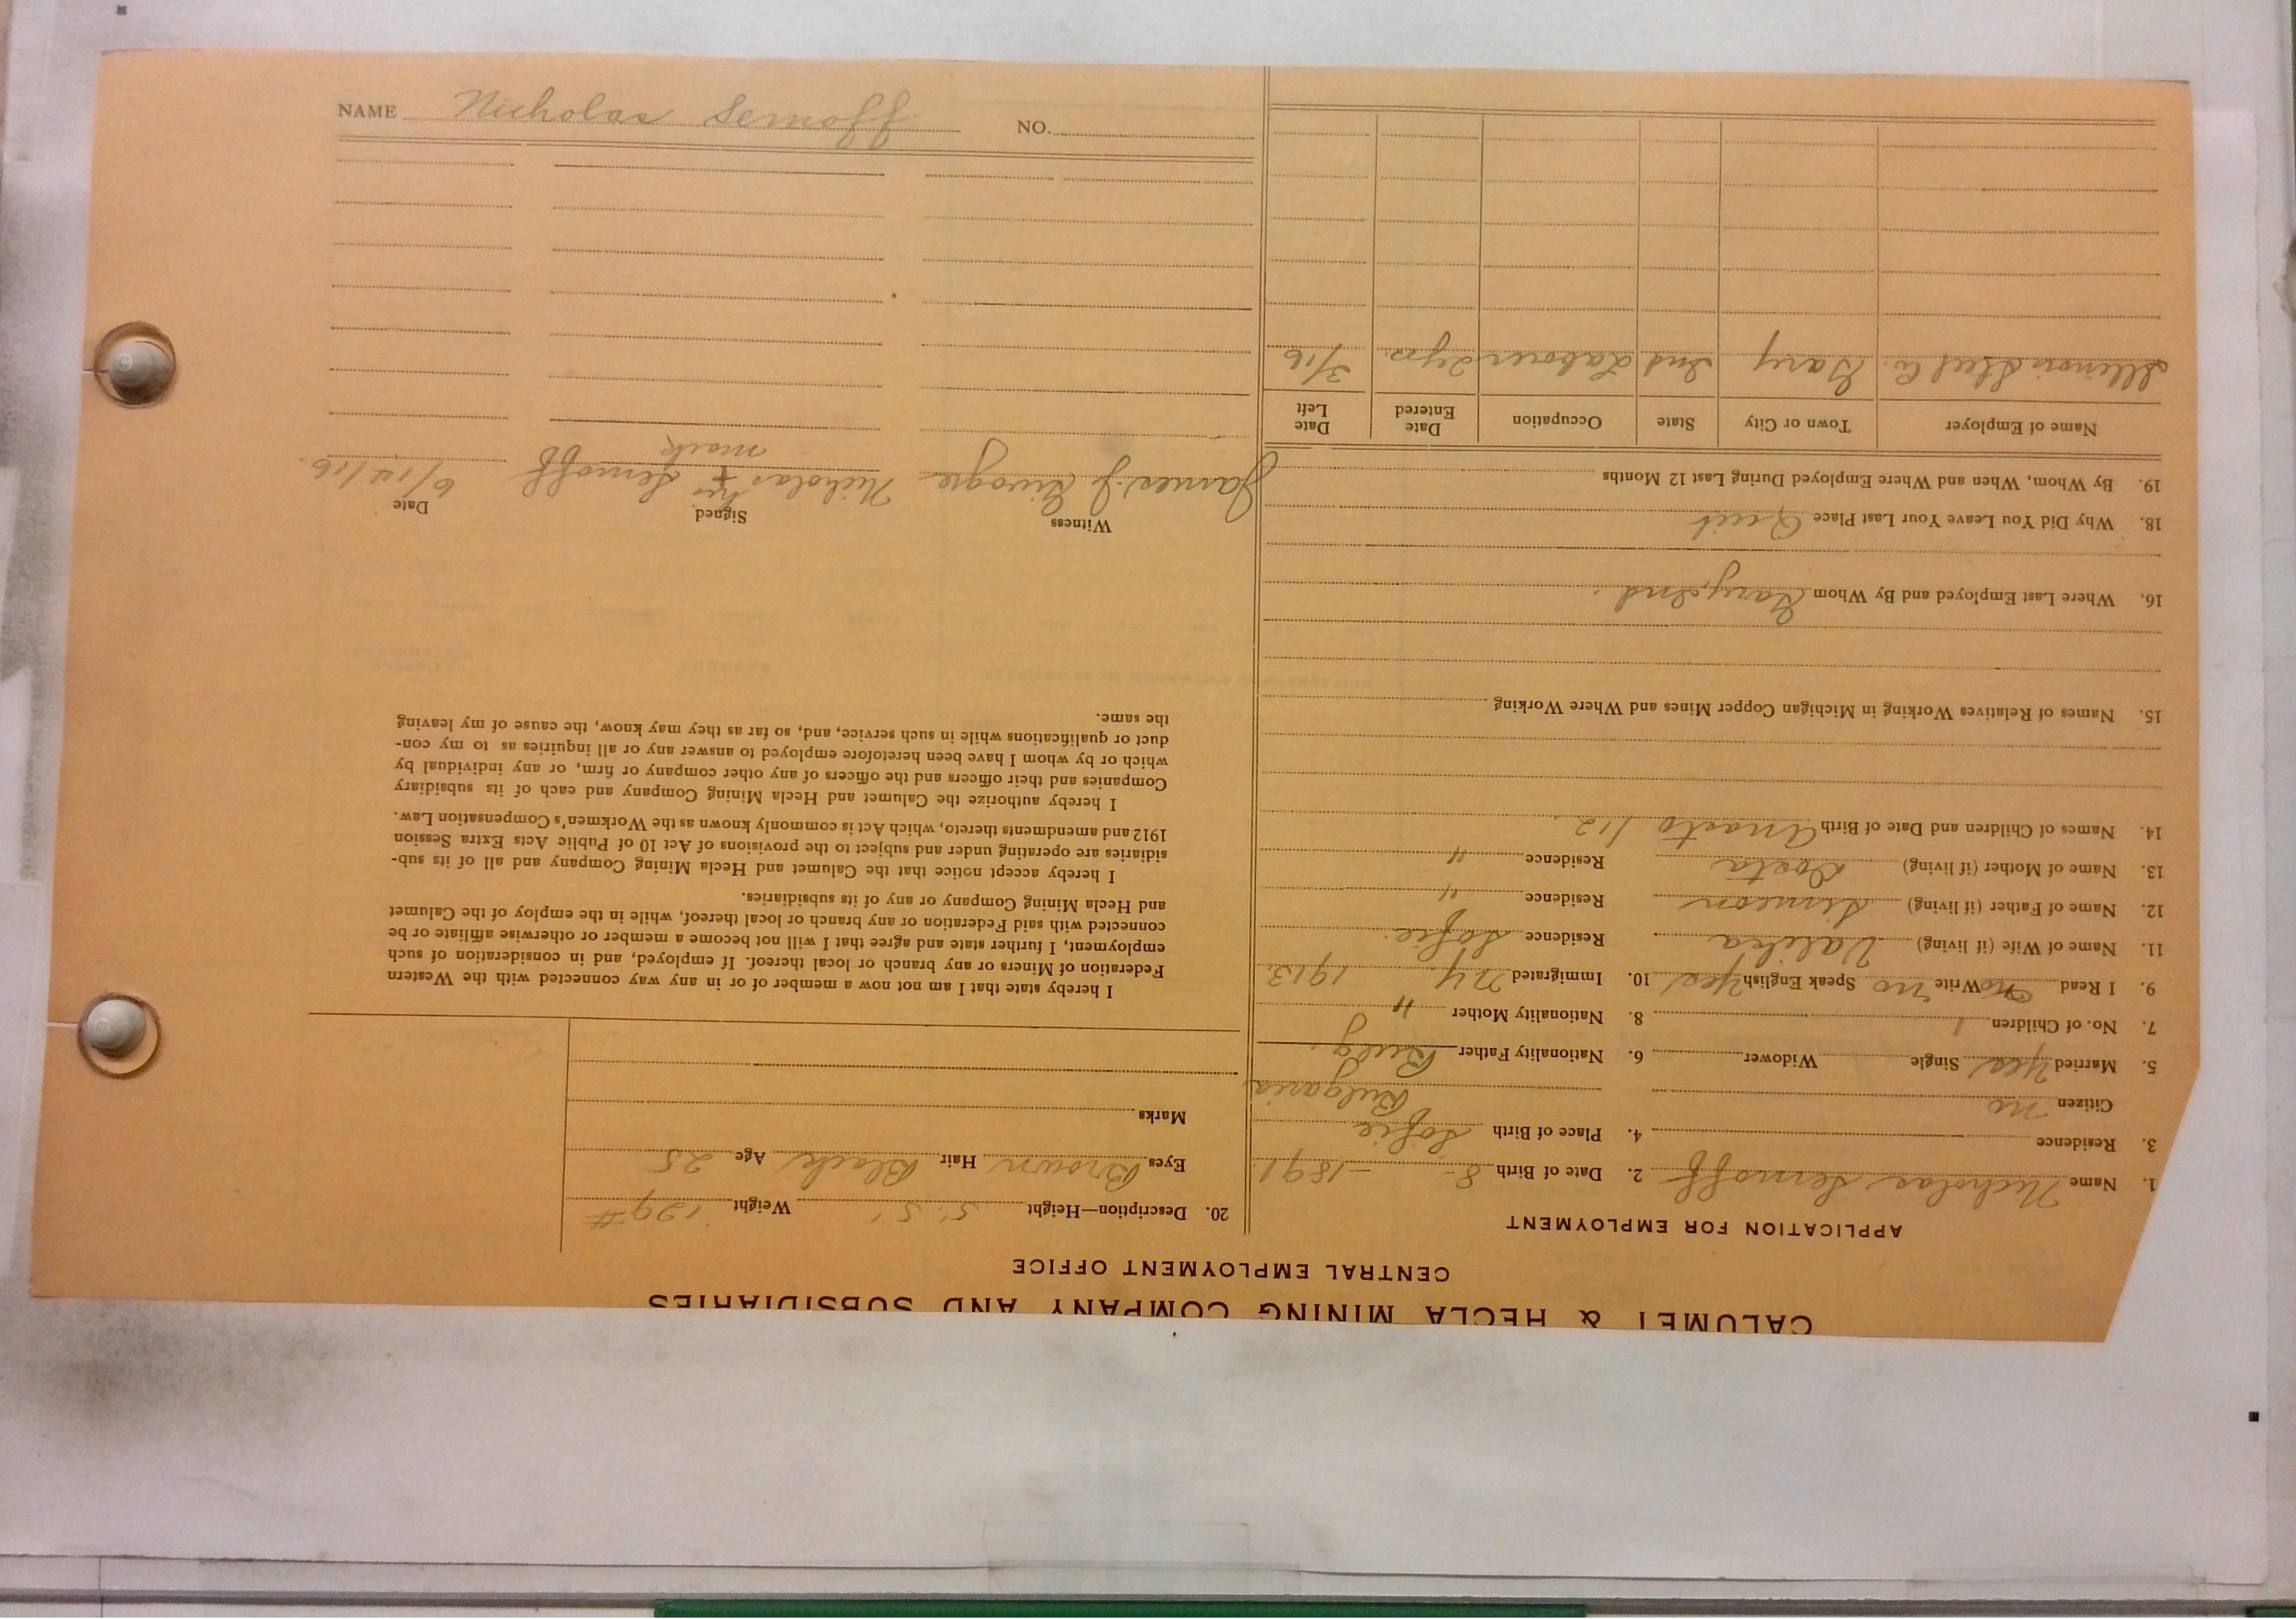 CALUMET & HECLA MINING COMPANY AND SUBSIDIARIES
CENTRAL EMPLOYMENT OFFICE
APPLICATION FOR EMPLOYMENT
1. Name Nicholas Semoff 2. Date of Birth 8 - - 1891
3. Residence 4. Place of Birth Sofie
Citizen no Bulgaria
5. Married Yes Single Widower 6. Nationality Father Bulg.
7. No. of Children 1 8. Nationality Mother "
9. I Read no Write no Speak English Yes 10. Immigrated N.Y. 1913.
11. Name of Wife (if living) Valika Residence Sofie.
12. Name of Father (if living) Simeon Residence "
13. Name of Mother (if living) Residence "
14. Names of Children and Date of Birth 1912.
15. Names of Relatives Working in Michigan Copper Mines and Where Working
16. Where Last Employed and By Whom Gary, Ind.
18. Why Did You Leave Your Last Place Quit
19. By Whom, When and Where Employed During Last 12 Months
Name of Employer Town or City State Occupation Date Entered Date Left
Illinois Steel Co. Gary Ind Laborer 2 yrs. 3/16
20. Description—Height 5' 5" Weight 129 #
Eyes Brown Hair Black Age 25
Marks
I hereby state that I am not now a member of or in any way connected with the Western
Federation of Miners or any branch or local thereof. If employed, and in consideration of such
employment, I further state and agree that I will not become a member or otherwise affiliate or be
connected with said Federation or any branch or local thereof, while in the employ of the Calumet
and Hecla Mining Company or any of its subsidiaries.
I hereby accept notice that the Calumet and Hecla Mining Company and all of its sub-
sidiaries are operating under and subject to the provisions of Act 10 of Public Acts Extra Session
1912 and amendments thereto, which Act is commonly known as the Workmen's Compensation Law.
I hereby authorize the Calumet and Hecla Mining Company and each of its subsidiary
Companies and their officers and the officers of any other company or firm, or any individual by
which or by whom I have been heretofore employed to answer any or all inquiries as to my con-
duct or qualifications while in such service, and, so far as they may know, the cause of my leaving
the same.
Witness Signed Date
James J. Nicholas his + Semoff 6/14/16.
mark
NAME Nicholas Semoff NO.